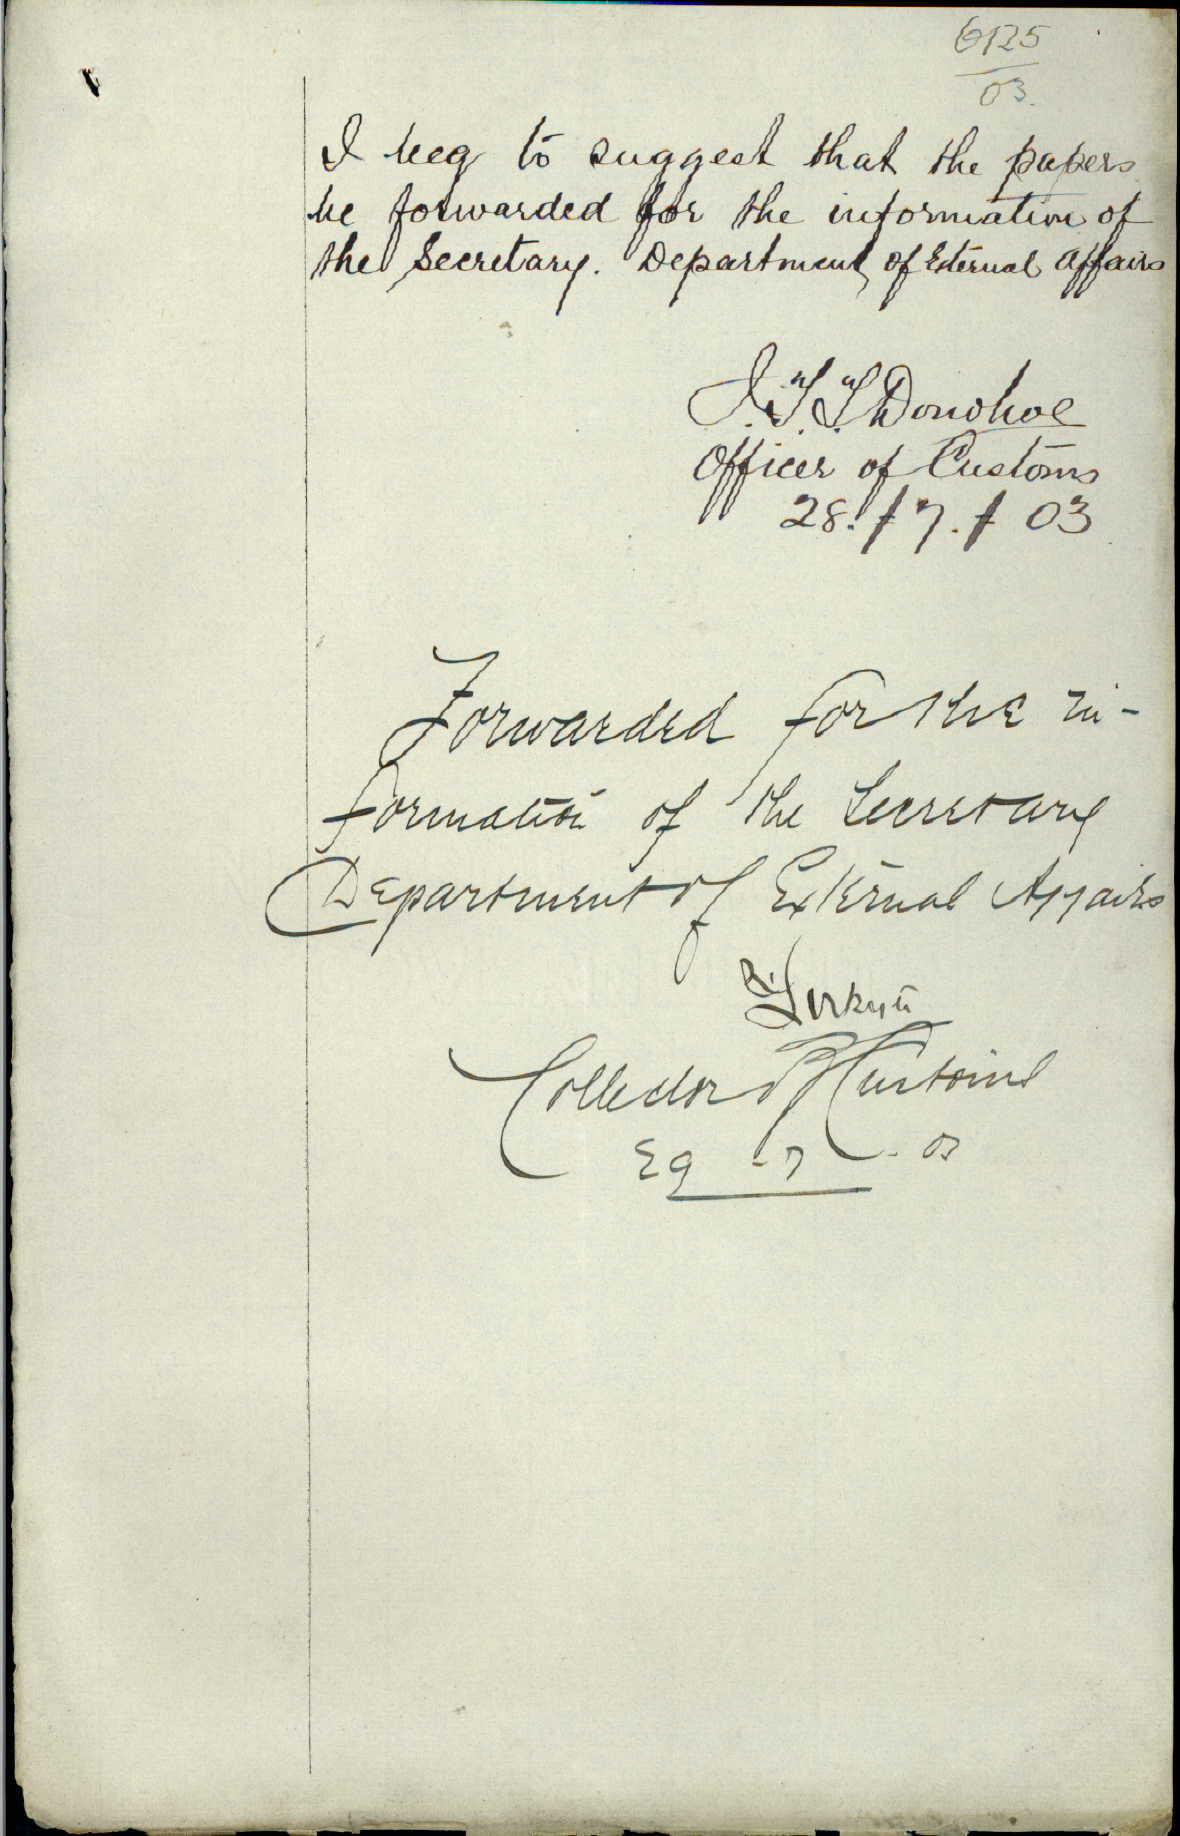 6125
03.
I beg to suggest that the papers
be forwarded for the information of
the Secretary. Department of External Affairs
Donohoe
Officer of Customs
28./7./03
Forwarded for the in-
formation of the Secretary
Department of External Affairs
Collector of Customs
29-7-03